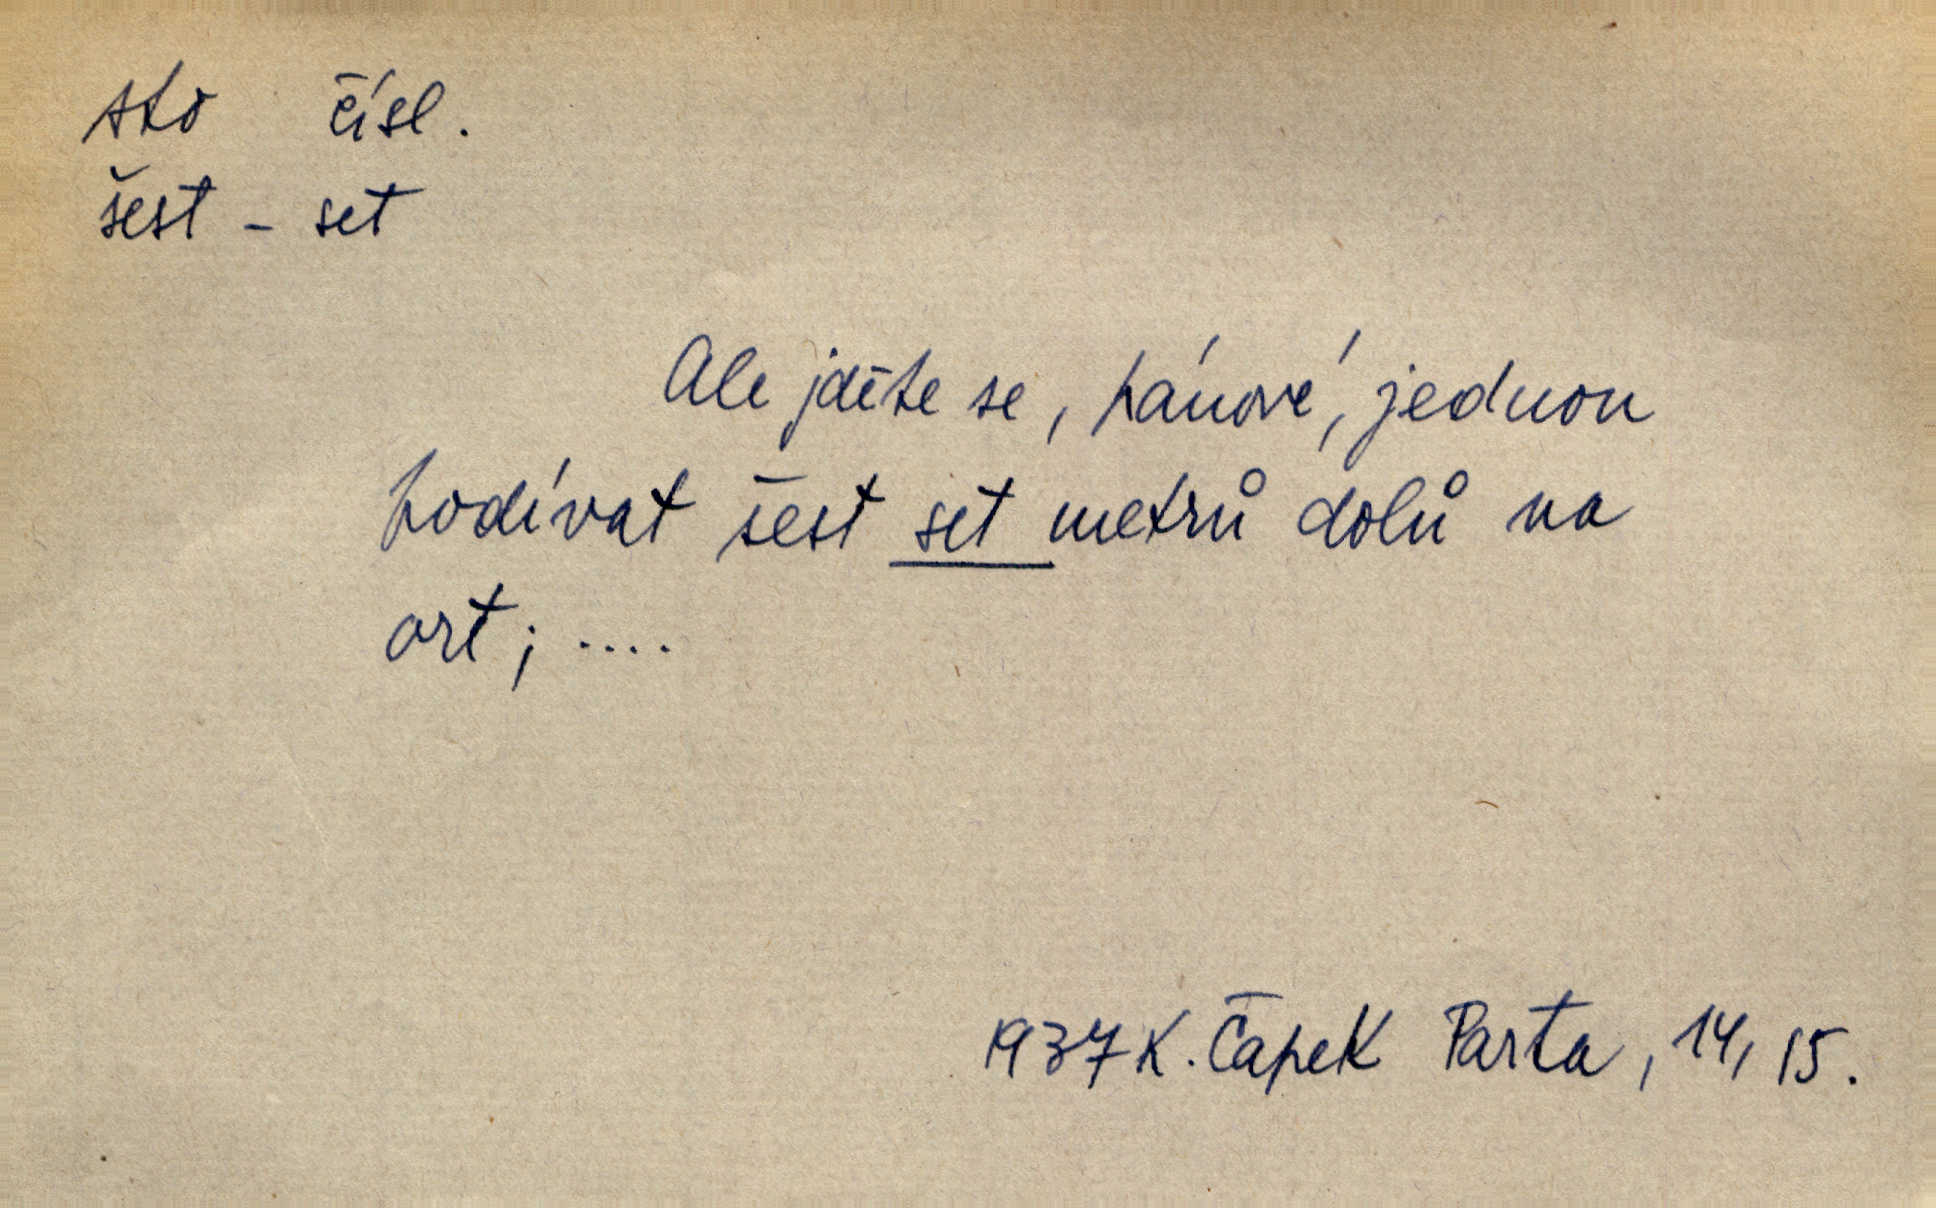 sto čísl.
šest - set
Ale jděte se, pánové, jednou
podívat šest set metrů dolů na
ort; ....
1937 K. Čapek Parta, 14, 15.